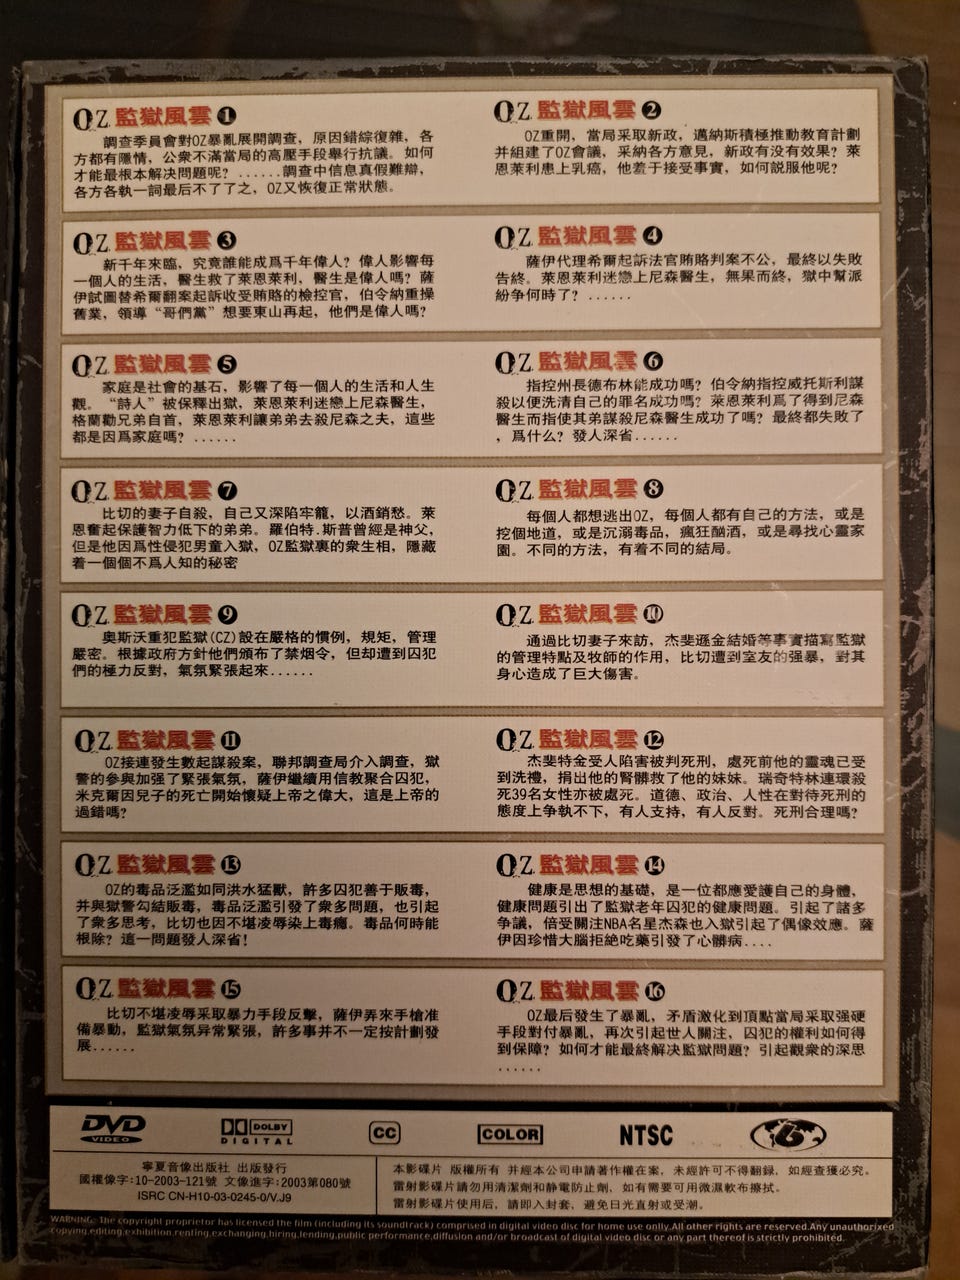 OZ 監獄風雲 1
調查季員會對OZ暴亂展開調查，原因錯綜復雜，各
方都有隱情，公衆不滿當局的高壓手段舉行抗議。如何
才能最根本解决問題呢？......調查中信息真假難辯，
各方各執一詞最后不了了之，OZ又恢復正常狀態。
OZ 監獄風雲 2
OZ重開，當局采取新政，邁納斯積極推動教育計劃
并組建了OZ會議，采納各方意見，新政有没有效果？萊
恩萊利患上乳癌，他羞于接受事實，如何説服他呢？
OZ 監獄風雲 3
新千年來臨，究竟誰能成爲千年偉人？偉人影響每
一個人的生活，醫生救了萊恩萊利，醫生是偉人嗎？薩
伊試圖替希爾翻案起訴收受賄賂的檢控官，伯令納重操
舊業，領導“哥們黨”想要東山再起，他們是偉人嗎？
OZ 監獄風雲 4
薩伊代理希爾起訴法官賄賂判案不公，最終以失敗
告終。萊恩萊利迷戀上尼森醫生，無果而終，獄中幫派
紛争何時了？......
OZ 監獄風雲 5
家庭是社會的基石，影響了每一個人的生活和人生
觀。“詩人”被保釋出獄，萊恩萊利迷戀上尼森醫生，
格蘭勸兄弟自首，萊恩萊利讓弟弟去殺尼森之夫，這些
都是因爲家庭嗎？......
OZ 監獄風雲 6
指控州長德布林能成功嗎？伯令納指控威托斯利謀
殺以便洗清自己的罪名成功嗎？萊恩萊利爲了得到尼森
醫生而指使其弟謀殺尼森醫生成功了嗎？最終都失敗了
，爲什么？發人深省......
OZ 監獄風雲 7
比切的妻子自殺，自己又深陷牢籠，以酒銷愁。萊
恩奮起保護智力低下的弟弟。羅伯特.斯普曾經是神父，
但是他因爲性侵犯男童入獄，OZ監獄裏的衆生相，隱藏
着一個個不爲人知的秘密
OZ 監獄風雲 8
每個人都想逃出OZ，每個人都有自己的方法，或是
挖個地道，或是沉溺毒品，瘋狂酗酒，或是尋找心靈家
園。不同的方法，有着不同的結局。
OZ 監獄風雲 9
奥斯沃重犯監獄(CZ)設在嚴格的慣例，規矩，管理
嚴密。根據政府方針他們頒布了禁烟令，但却遭到囚犯
們的極力反對，氣氛緊張起來......
OZ 監獄風雲 10
通過比切妻子來訪，杰斐遜金結婚等事實描寫監獄
的管理特點及牧師的作用，比切遭到室友的强暴，對其
身心造成了巨大傷害。
OZ 監獄風雲 11
OZ接連發生數起謀殺案，聯邦調查局介入調查，獄
警的參與加强了緊張氣氛，薩伊繼續用信教聚合囚犯，
米克爾因兒子的死亡開始懷疑上帝之偉大，這是上帝的
過錯嗎？
OZ 監獄風雲 12
杰斐特金受人陷害被判死刑，處死前他的靈魂已受
到洗禮，捐出他的腎髒救了他的妹妹。瑞奇特林連環殺
死39名女性亦被處死。道德、政治、人性在對待死刑的
態度上争執不下，有人支持，有人反對。死刑合理嗎？
OZ 監獄風雲 13
OZ的毒品泛濫如同洪水猛獸，許多囚犯善于販毒，
并與獄警勾結販毒，毒品泛濫引發了衆多問題，也引起
了衆多思考，比切也因不堪凌辱染上毒癮。毒品何時能
根除？這一問題發人深省！
OZ 監獄風雲 14
健康是思想的基礎，是一位都應愛護自己的身體，
健康問題引出了監獄老年囚犯的健康問題。引起了諸多
争議，倍受關注NBA名星杰森也入獄引起了偶像效應。薩
伊因珍惜大腦拒絶吃藥引發了心髒病....
OZ 監獄風雲 15
比切不堪凌辱采取暴力手段反擊，薩伊弄來手槍准
備暴動，監獄氣氛异常緊張，許多事并不一定按計劃發
展......
OZ 監獄風雲 16
OZ最后發生了暴亂，矛盾激化到頂點當局采取强硬
手段對付暴亂，再次引起世人關注，囚犯的權利如何得
到保障？如何才能最終解决監獄問題？引起觀衆的深思
......
DVD VIDEO
DOLBY DIGITAL
CC
COLOR
NTSC
6
寧夏音像出版社 出版發行
國權像字:10-2003-121號 文像進字:2003第080號
ISRC CN-H10-03-0245-0/V.J9
本影碟片 版權所有 并經本公司申請著作權在案，未經許可不得翻録，如經查獲必究。
雷射影碟片請勿用清潔劑和静電防止劑，如有需要可用微濕軟布擦拭。
雷射影碟片使用后，請即入封套，避免日光直射或受潮。
WARNING: The copyright proprietor has licensed the film (including its soundtrack) comprised in digital video disc for home use only.All other rights are reserved.Any unauthorixed
copying,editing,exhibition,renting,exchanging,hiring,lending,public performance,diffusion and/or broadcast of digital video disc or any part thereof is strictly prohibited.